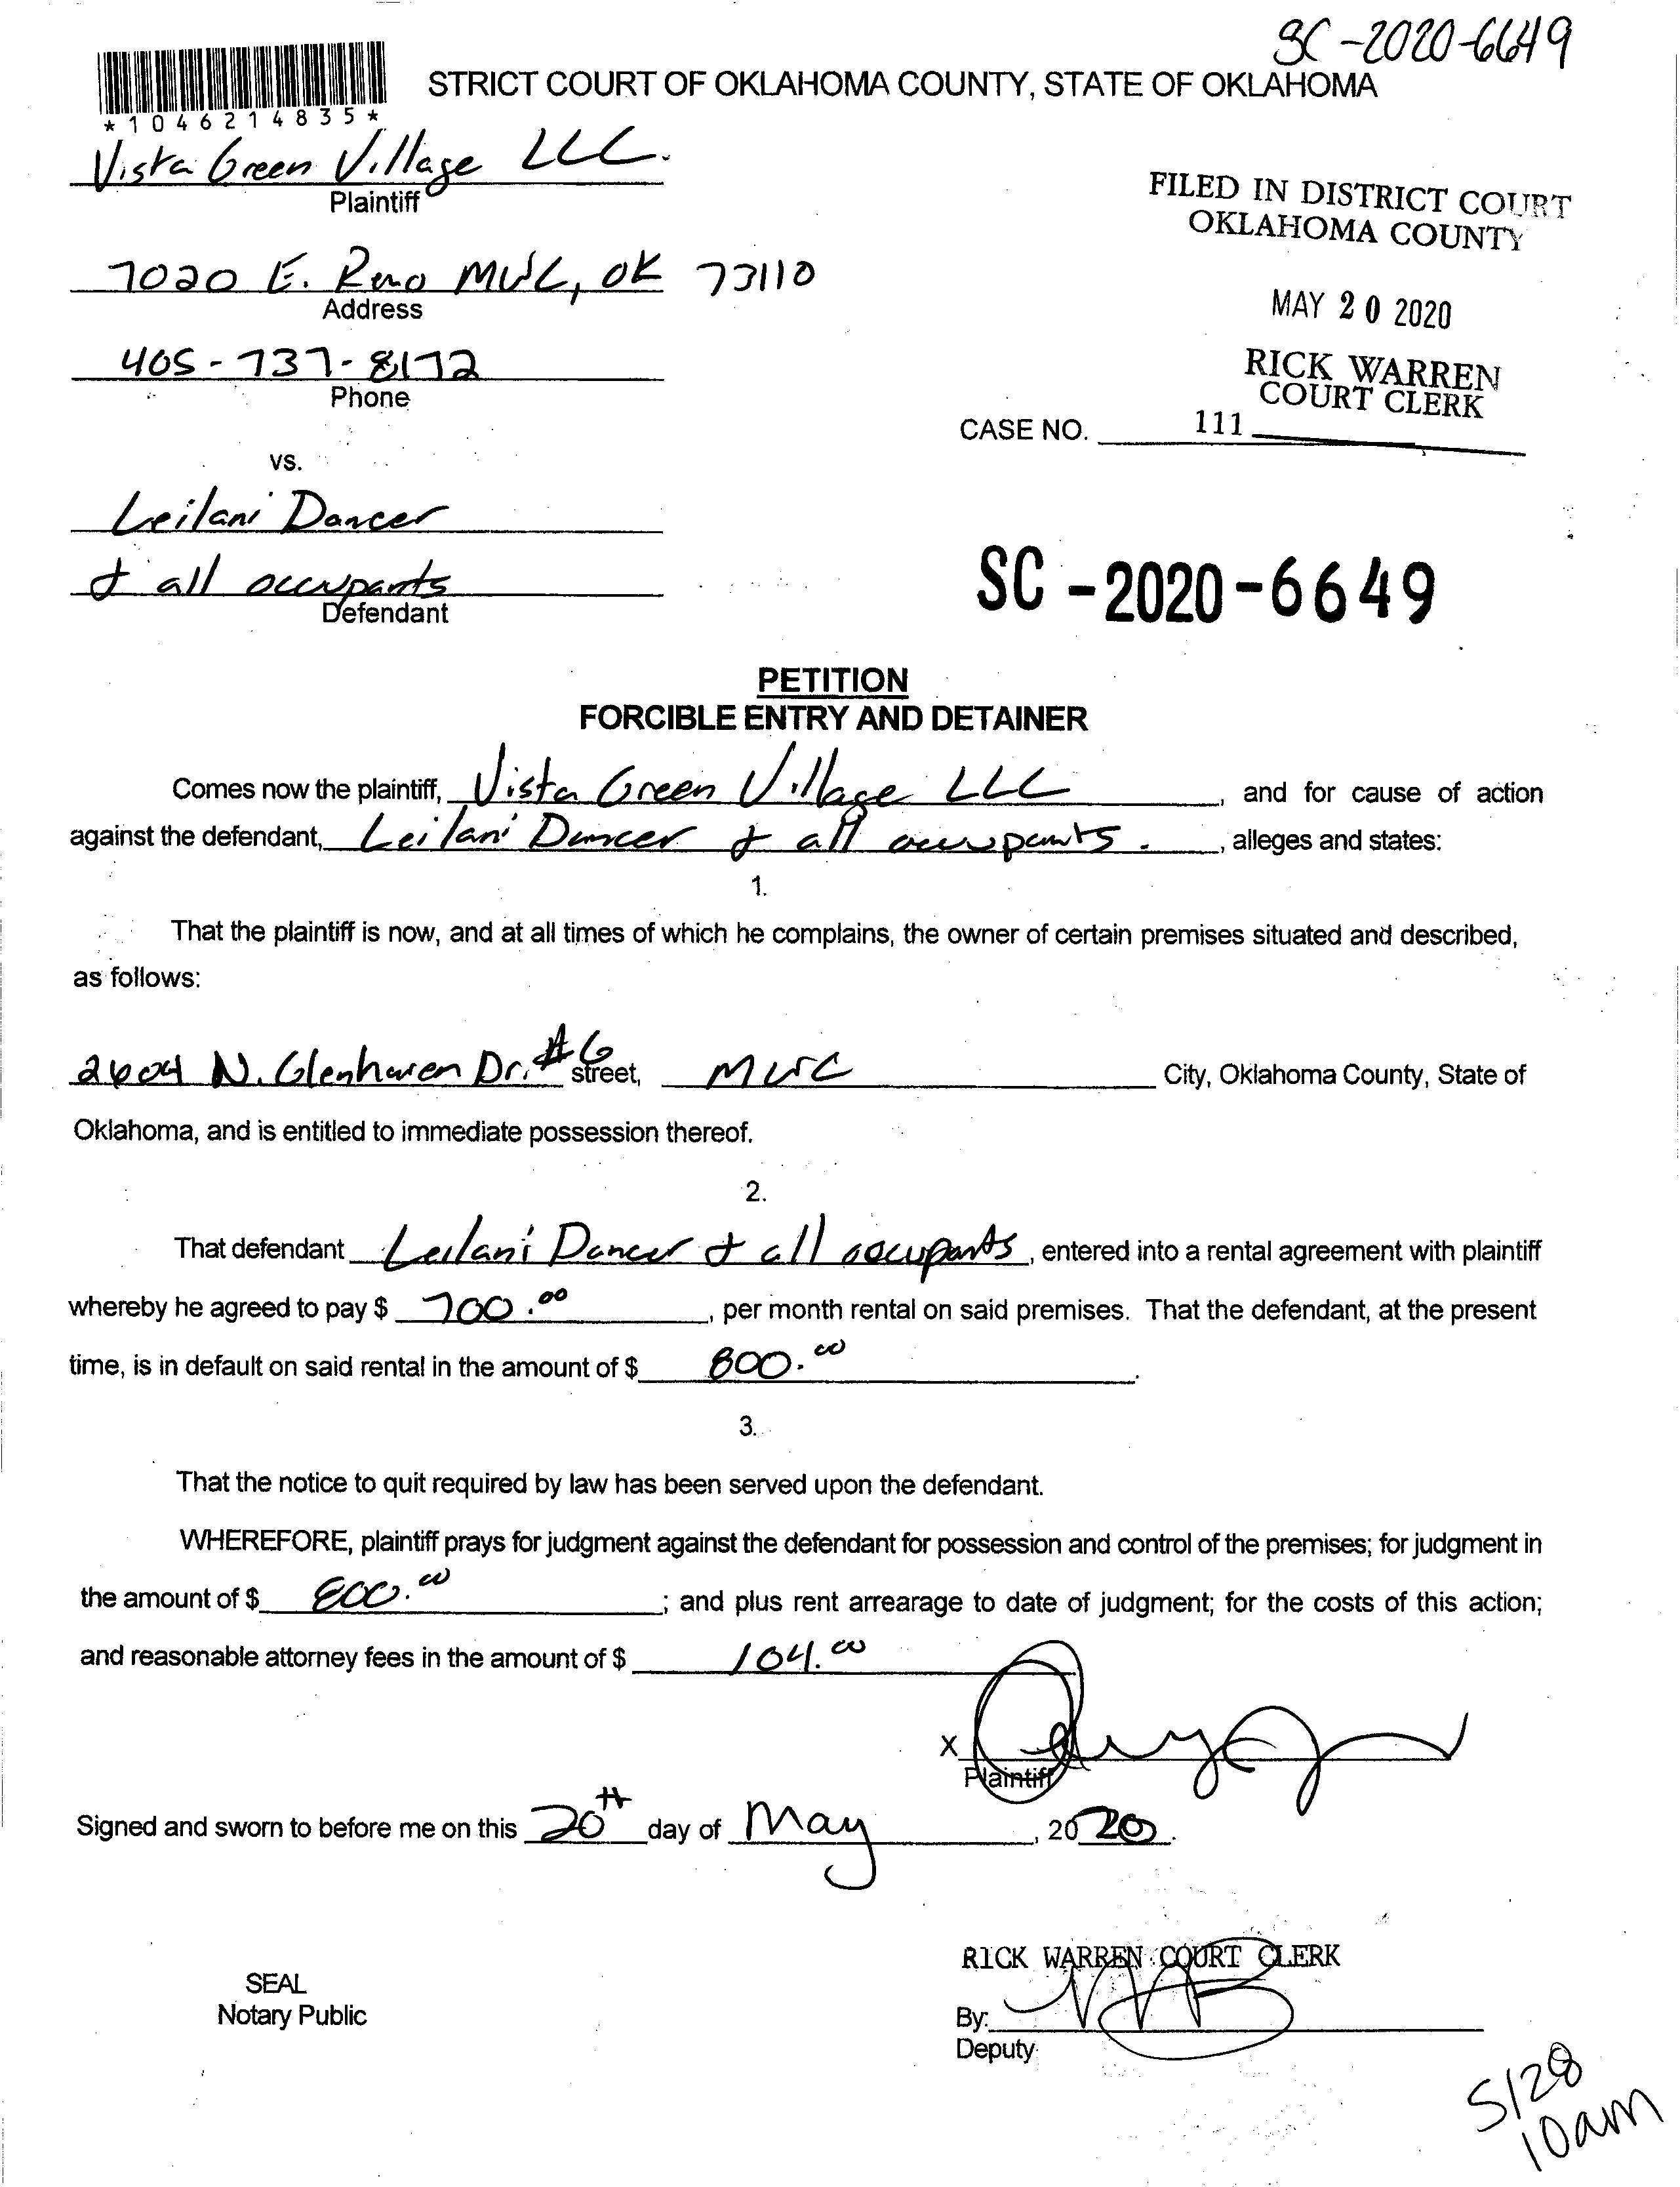 SC-2020-6649
STRICT COURT OF OKLAHOMA COUNTY, STATE OF OKLAHOMA
*1046214835*
Vista Green Village LLC.
Plaintiff
FILED IN DISTRICT COURT
OKLAHOMA COUNTY
7020 E. Reno MWC, OK 73110
Address
MAY 20 2020
405-737-8172
Phone
RICK WARREN
COURT CLERK
CASE NO. 111
vs.
Leilani Dancer
& all occupants
Defendant
SC-2020-6649
PETITION
FORCIBLE ENTRY AND DETAINER
Comes now the plaintiff, Vista Green Village LLC, and for cause of action
against the defendant, Leilani Dancer & all occupants., alleges and states:
1.
That the plaintiff is now, and at all times of which he complains, the owner of certain premises situated and described,
as follows:
2604 N. Glenhaven Dr. #6 street, MWC City, Oklahoma County, State of
Oklahoma, and is entitled to immediate possession thereof.
2.
That defendant Leilani Dancer & all occupants, entered into a rental agreement with plaintiff
whereby he agreed to pay $ 700.00, per month rental on said premises. That the defendant, at the present
time, is in default on said rental in the amount of $ 800.00.
3.
That the notice to quit required by law has been served upon the defendant.
WHEREFORE, plaintiff prays for judgment against the defendant for possession and control of the premises; for judgment in
the amount of $ 800.00; and plus rent arrearage to date of judgment; for the costs of this action;
and reasonable attorney fees in the amount of $ 104.00
X
Plaintiff
Signed and sworn to before me on this 20th day of May, 2020.
RICK WARREN COURT CLERK
SEAL
Notary Public
By:
Deputy
5/28
10am